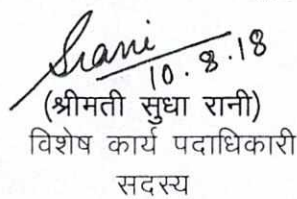 Srani
10.8.18
(श्रीमती सुधा रानी)
विशेष कार्य पदाधिकारी
सदस्य